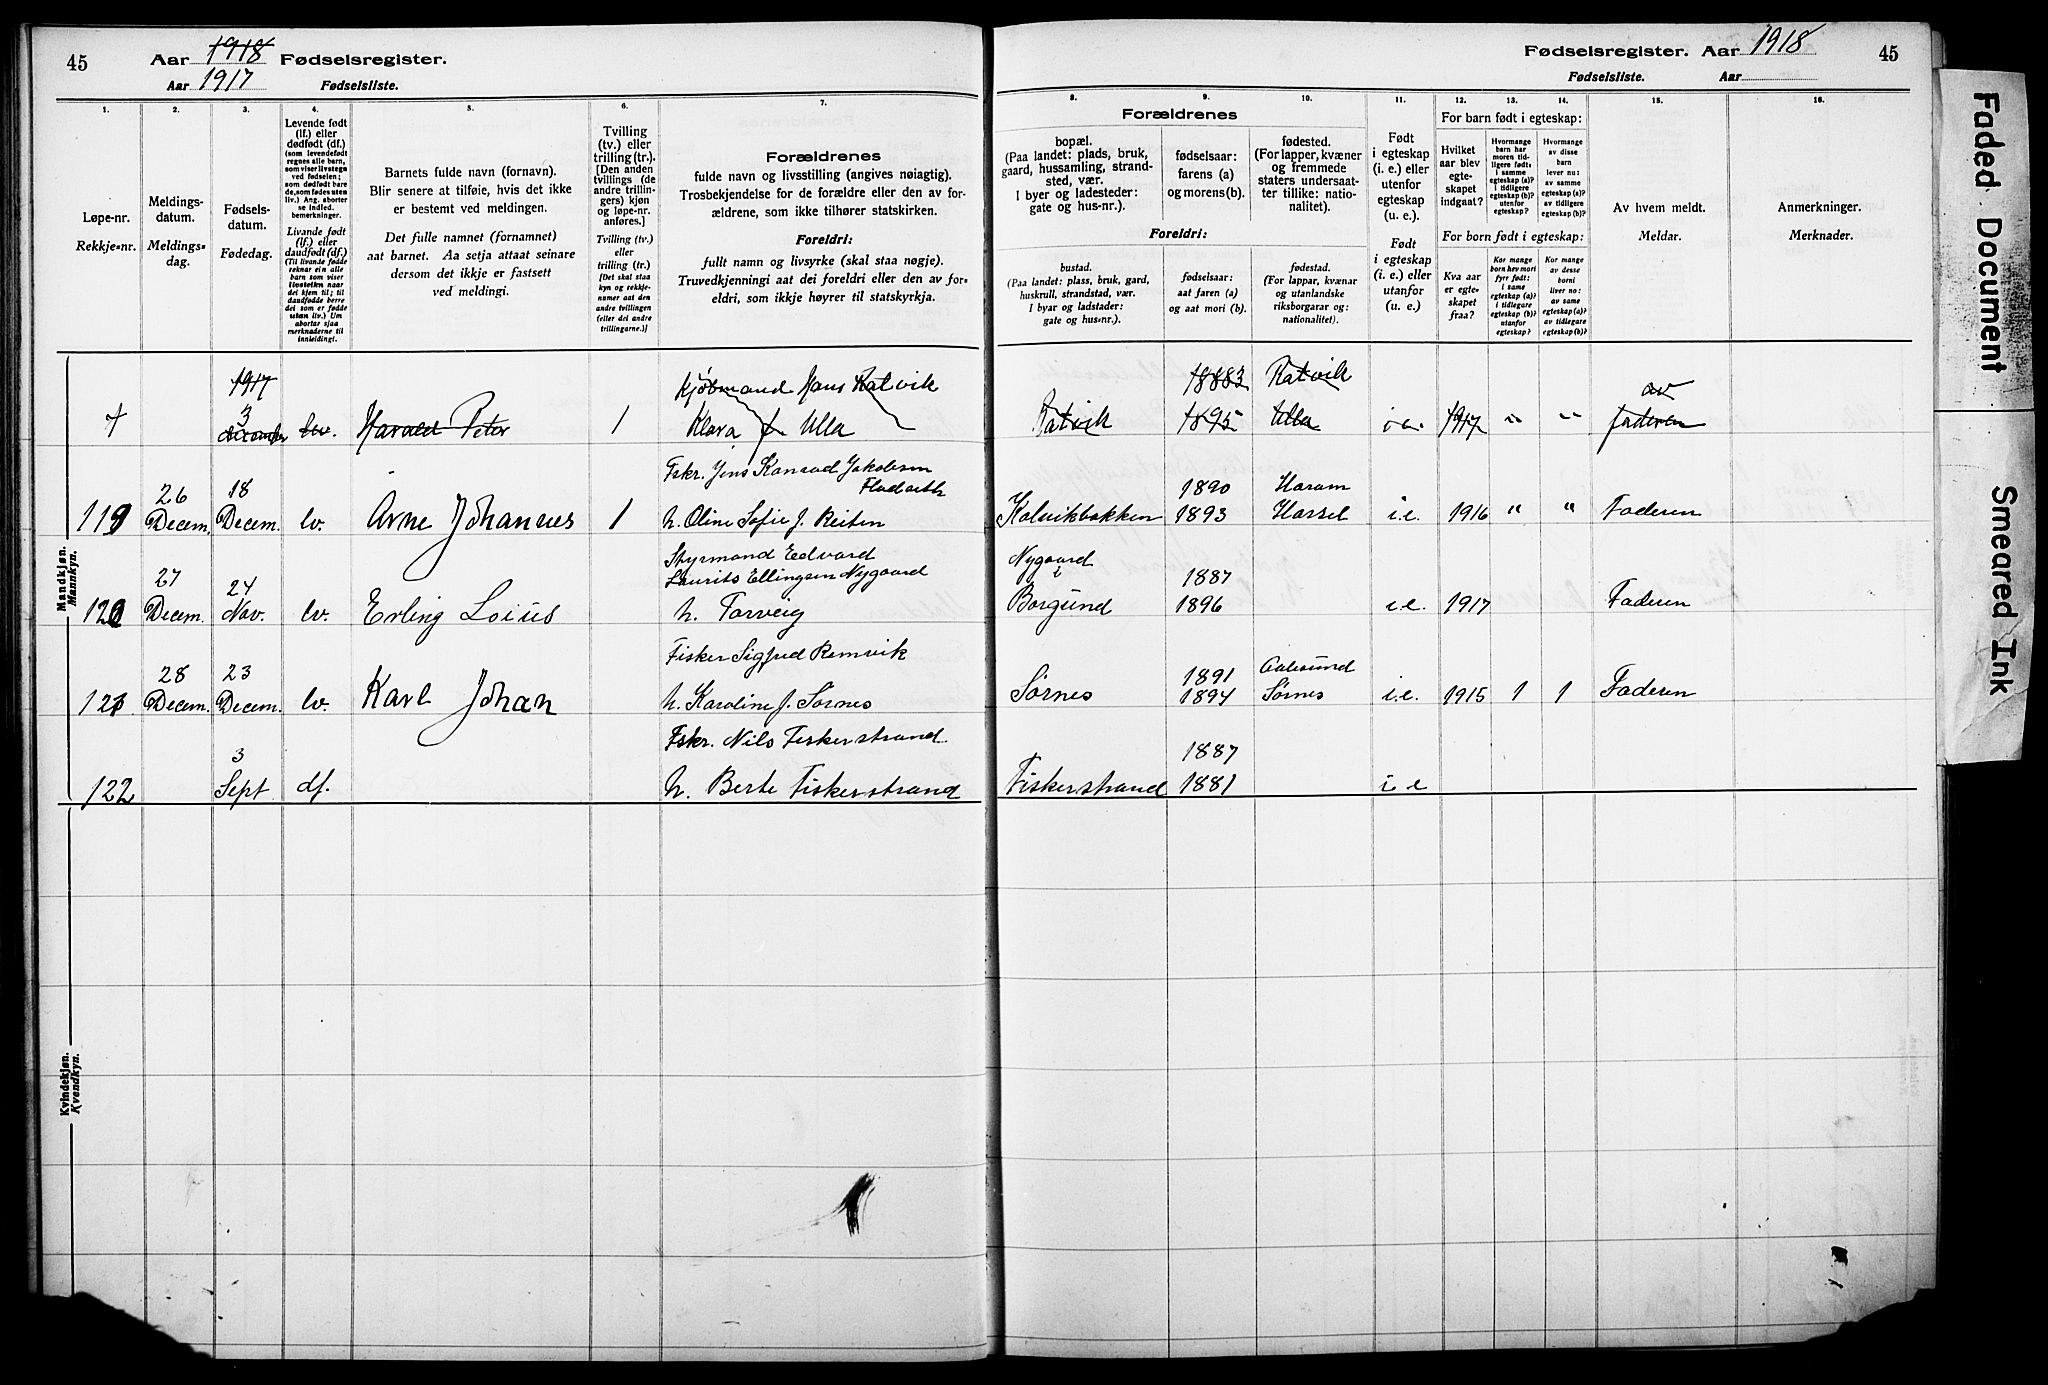 45
Aar 1918 Fødselsregister.
Aar 1917 Fødselsliste.
1. 2. 3. 4. 5. 6. 7.
Løpe-nr.
Rekkje-nr.
Meldings-
datum.
Meldings-
dag.
Fødsels-
datum.
Fødedag.
Levende født
(lf.) eller
dødfødt (df.)
(som levendefødt
regnes alle barn,
som viser livstegn
ved fødselen;
som dødfødt bare
de, som fødes uten
liv.) Ang. aborter
se indled.
bemerkninger.
Livande født
(lf.) eller
daudfødt (df.)
(Til livande fødde
reknar ein alle
barn som viser
livsteikn naar
dei kjem til; til
daudfødde berre
dei som er fødde
utan liv.) Um
abortar sjaa
merknaderne til
innleidingi.
Barnets fulde navn (fornavn).
Blir senere at tilføie, hvis det ikke
er bestemt ved meldingen.
Det fulle namnet (fornamnet)
aat barnet. Aa setja attaat seinare
dersom det ikkje er fastsett
ved meldingi.
Tvilling
(tv.) eller
trilling (tr.).
[Den anden
tvillings (de
andre trillin-
gers) kjøn
og løpe-nr.
anføres.]
Tvilling (tv.)
eller
trilling (tr.)
[Det skal staa
kyn og rekkje-
numer aat den
andre tvillingen
(eller dei andre
trillingarne.)]
Forældrenes
fulde navn og livsstilling (angives nøiagtig).
Trosbekjendelse for de forældre eller den av for-
ældrene, som ikke tilhører statskirken.
Foreldri:
fullt namn og livsyrke (skal staa nøgje).
Truvedkjenningi aat dei foreldri eller den av for-
eldri, som ikkje høyrer til statskyrkja.
Fødselsregister. Aar 1918
Fødselsliste. Aar
45
8. 9. 10. 11. 12. 13. 14. 15. 16.
Forældrenes
bopæl.
(Paa landet: plads, bruk,
gaard, hussamling, strand-
sted, vær.
I byer og ladesteder:
gate og hus-nr.).
fødselsaar:
farens (a)
og morens (b).
fødested.
(For lapper, kvæner
og fremmede
staters undersaat-
ter tillike: natio-
nalitet).
Foreldri:
bustad.
(Paa landet: plass, bruk, gard,
huskrull, strandstad, vær.
I byar og ladstader:
gate og hus-nr.).
fødselsaar:
aat faren (a)
og aat mori (b).
fødestad.
(For lappar, kvænar
og utanlandske
riksborgarar og:
nationalitet).
Født
i egteskap
(i. e.) eller
utenfor
egteskap
(u. e.).
Født
i egteskap
(i. e.) eller
utanfor
(u. e.)
For barn født i egteskap:
Hvilket
aar blev
egte-
skapet
indgaat?
Hvormange
barn har
moren tid-
ligere født:
i samme
egteskap (a)?
i tidligere
egteskap (b)?
utenfor
egteskap?
Hvormange
av disse
barn
lever nu:
av samme
egteskap (a)?
av tidligere
egteskap (b)?
For born født i egteskap:
Kva aar
er egte-
skapet
fraa?
Kor mange
born hev mori
fyrr født:
i same
egteskap (a)?
i tidlegare
egteskap (b)?
utanfor
egteskap?
Kor mange
av desse
borni
liver no:
av same
egteskap (a)?
av tidlegare
egteskap (b)?
Av hvem meldt.
Meldar.
Anmerkninger.
Merknader.
Mandkjøn.
Mannkyn.
1917 Kjøbmand Hans Ratvik 18883 Ratvik av
3 december lev. Harald Peter 1 Klara f. Ulla Ratvik 1895 Ulla i e. 1917 " " faderen
Fskr. Jens Konrad Jakobsen
26 18 1890 Haram
119 Decem. Decem. lv. Arne Johannes 1 h. Oline Sofie f. Reiten Kolvikbakken 1893 Hassel i.e. 1916 " " Faderen
Styrmand Edvard Nygaard
27 24 Laurits Ellingsen Nygaard i 1887
120 Decem. Nov. lv. Erling Loius h. Torveig Borgund 1896 i.e. 1917 Faderen
Fisker Sigfred Remvik
28 23 1891 Aalesund
121 Decem. Decem. lv. Karl Johan h. Karoline f. Sørnes Sørnes 1894 Sørnes i.e. 1915 1 1 Faderen
Fskr. Nils Fiskerstrand
3 1887
122 Sept df. h. Berte Fiskerstrand Fiskerstrand 1881 i e
Kvindekjøn.
Kvendkyn.
Faded Document
Smeared Ink